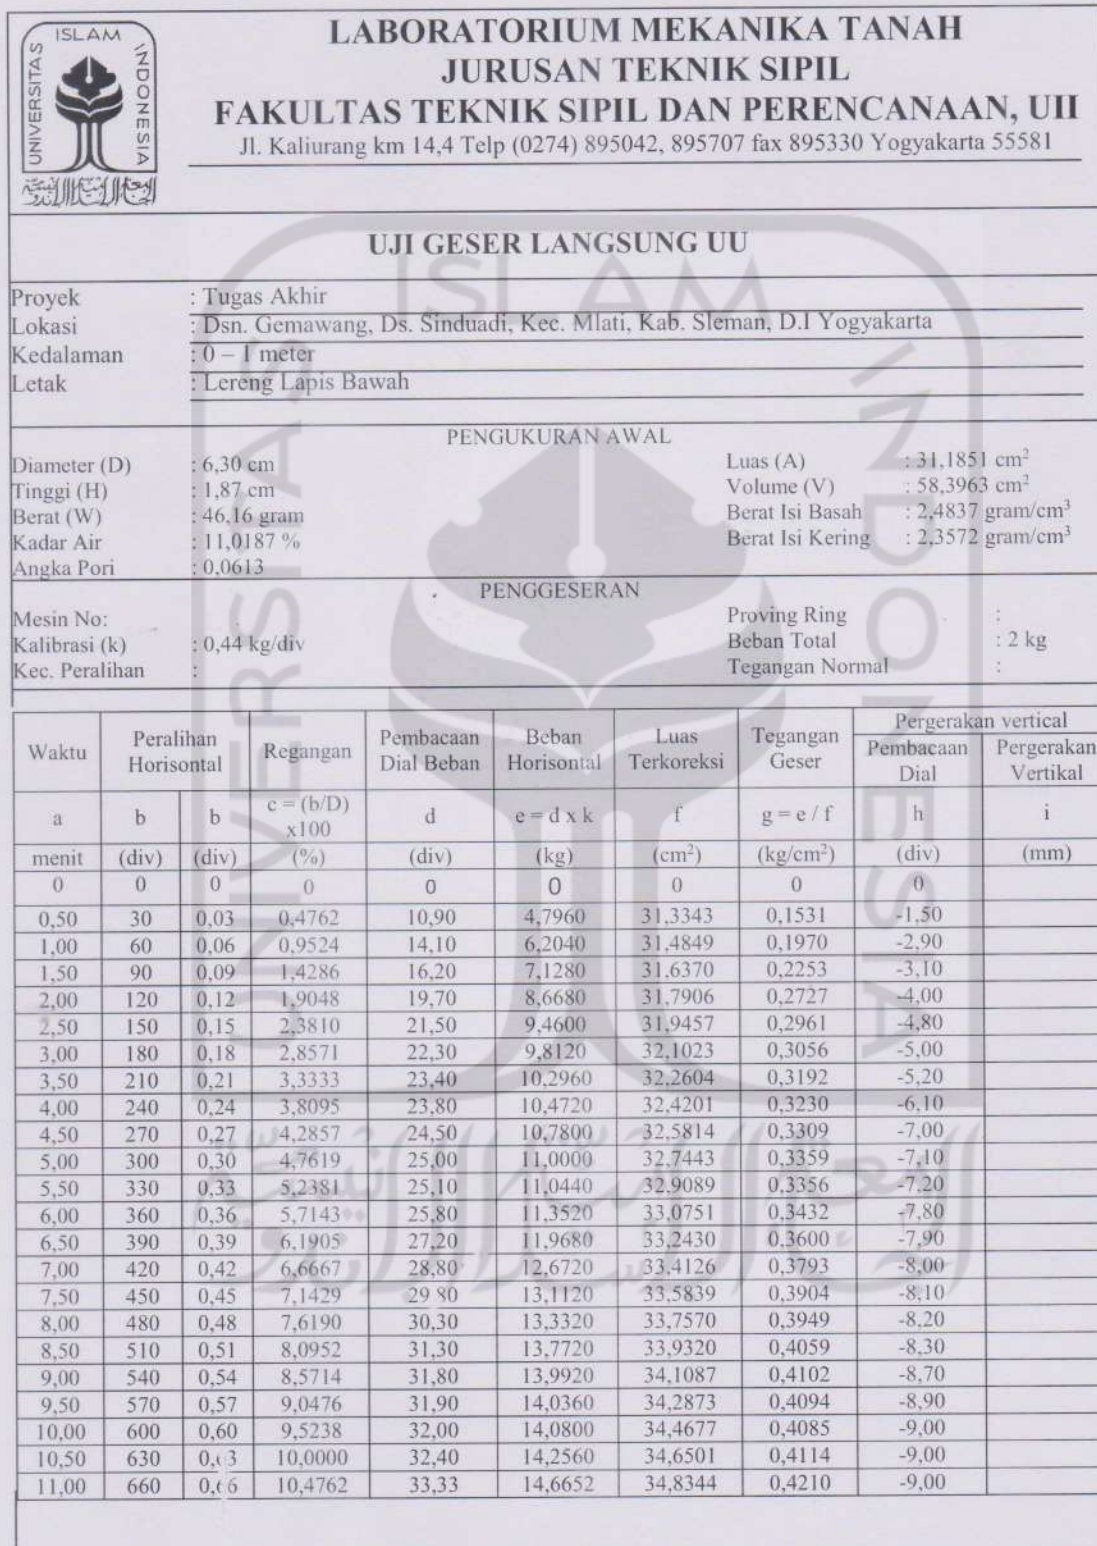 UNIVERSITAS ISLAM INDONESIA
LABORATORIUM MEKANIKA TANAH
JURUSAN TEKNIK SIPIL
FAKULTAS TEKNIK SIPIL DAN PERENCANAAN, UII
Jl. Kaliurang km 14,4 Telp (0274) 895042, 895707 fax 895330 Yogyakarta 55581
UJI GESER LANGSUNG UU
Proyek : Tugas Akhir
Lokasi : Dsn. Gemawang, Ds. Sinduadi, Kec. Mlati, Kab. Sleman, D.I Yogyakarta
Kedalaman : 0 – 1 meter
Letak : Lereng Lapis Bawah
PENGUKURAN AWAL
Diameter (D) : 6,30 cm Luas (A) : 31,1851 cm²
Tinggi (H) : 1,87 cm Volume (V) : 58,3963 cm²
Berat (W) : 46,16 gram Berat Isi Basah : 2,4837 gram/cm³
Kadar Air : 11,0187 % Berat Isi Kering : 2,3572 gram/cm³
Angka Pori : 0,0613
PENGGESERAN
Mesin No: Proving Ring :
Kalibrasi (k) : 0,44 kg/div Beban Total : 2 kg
Kec. Peralihan : Tegangan Normal :
Waktu Peralihan Horisontal Regangan Pembacaan Dial Beban Beban Horisontal Luas Terkoreksi Tegangan Geser Pergerakan vertical
Pembacaan Dial Pergerakan Vertikal
a b b c = (b/D) x100 d e = d x k f g = e / f h i
menit (div) (div) (%) (div) (kg) (cm²) (kg/cm²) (div) (mm)
0 0 0 0 0 0 0 0 0
0,50 30 0,03 0,4762 10,90 4,7960 31,3343 0,1531 -1,50
1,00 60 0,06 0,9524 14,10 6,2040 31,4849 0,1970 -2,90
1,50 90 0,09 1,4286 16,20 7,1280 31,6370 0,2253 -3,10
2,00 120 0,12 1,9048 19,70 8,6680 31,7906 0,2727 -4,00
2,50 150 0,15 2,3810 21,50 9,4600 31,9457 0,2961 -4,80
3,00 180 0,18 2,8571 22,30 9,8120 32,1023 0,3056 -5,00
3,50 210 0,21 3,3333 23,40 10,2960 32,2604 0,3192 -5,20
4,00 240 0,24 3,8095 23,80 10,4720 32,4201 0,3230 -6,10
4,50 270 0,27 4,2857 24,50 10,7800 32,5814 0,3309 -7,00
5,00 300 0,30 4,7619 25,00 11,0000 32,7443 0,3359 -7,10
5,50 330 0,33 5,2381 25,10 11,0440 32,9089 0,3356 -7,20
6,00 360 0,36 5,7143 25,80 11,3520 33,0751 0,3432 -7,80
6,50 390 0,39 6,1905 27,20 11,9680 33,2430 0,3600 -7,90
7,00 420 0,42 6,6667 28,80 12,6720 33,4126 0,3793 -8,00
7,50 450 0,45 7,1429 29,80 13,1120 33,5839 0,3904 -8,10
8,00 480 0,48 7,6190 30,30 13,3320 33,7570 0,3949 -8,20
8,50 510 0,51 8,0952 31,30 13,7720 33,9320 0,4059 -8,30
9,00 540 0,54 8,5714 31,80 13,9920 34,1087 0,4102 -8,70
9,50 570 0,57 9,0476 31,90 14,0360 34,2873 0,4094 -8,90
10,00 600 0,60 9,5238 32,00 14,0800 34,4677 0,4085 -9,00
10,50 630 0,63 10,0000 32,40 14,2560 34,6501 0,4114 -9,00
11,00 660 0,66 10,4762 33,33 14,6652 34,8344 0,4210 -9,00